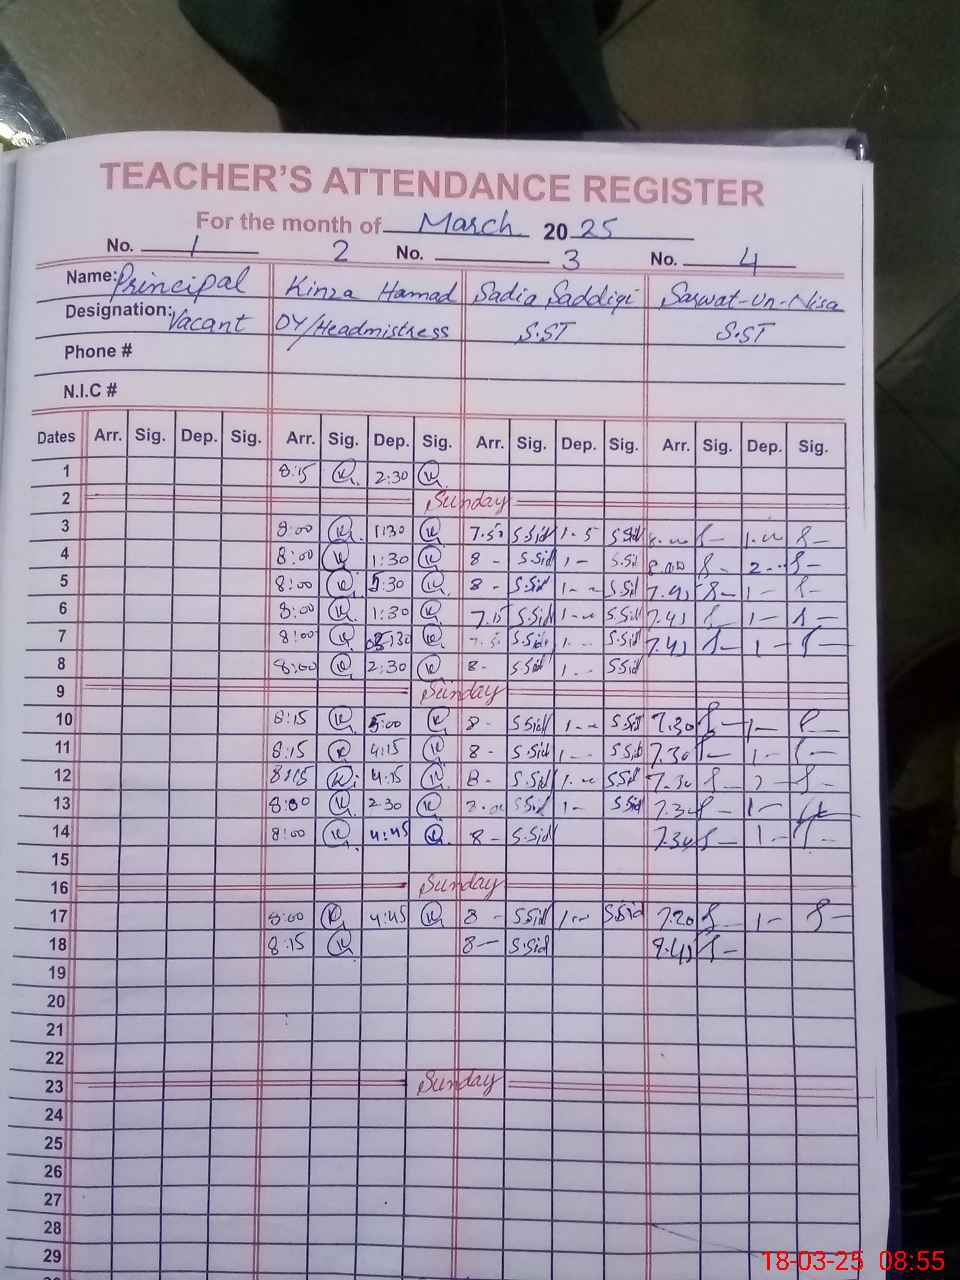 TEACHER'S ATTENDANCE REGISTER
For the month of March 20 25
No. 1 2 No. 3 No. 4
Name: Principal Kinza Hamad Sadia Saddiqi Sarwat-Un-Nisa
Designation: Vacant DY/Headmistress S.ST S.ST
Phone #
N.I.C #
Dates Arr. Sig. Dep. Sig. Arr. Sig. Dep. Sig. Arr. Sig. Dep. Sig. Arr. Sig. Dep. Sig.
1 8:15 K 2:30 K
2 Sunday
3 8:00 K 1:30 K 7.50 S.Sid 1.5 S.Sid
4 8:00 K 1:30 K 8 - S.Sid 1 - S.Sid 8.00 2
5 8:00 K :30 K 8 - S.Sid 1 - S.Sid 7.45 1 -
6 8:00 K 1:30 K 7.15 S.Sid 1 - S.Sid 7.45 1 -
7 8:00 K K S.Sid 1 - S.Sid 7.45 1 -
8 8:00 K 2:30 K 8 - S.Sid 1 - S.Sid
9 Sunday
10 8:15 K 5:00 K 8 - S.Sid 1 - S.Sid 7.30 1 -
11 8:15 K 4:15 K 8 - S.Sid 1 - S.Sid 7.30 1 -
12 8:15 K 4:15 K 8 - S.Sid 1 - S.Sid 7.30
13 8:00 K 2:30 K S.Sid 1 - S.Sid 7.30 1 -
14 8:00 K 4:45 K 8 - S.Sid 7.30 1 -
15
16 Sunday
17 8:00 K 4:45 K 8 - S.Sid 1 - S.Sid 7.20 1 -
18 8:15 K 8 - S.Sid
19
20
21
22
23 Sunday
24
25
26
27
28
29
18-03-25 08:55